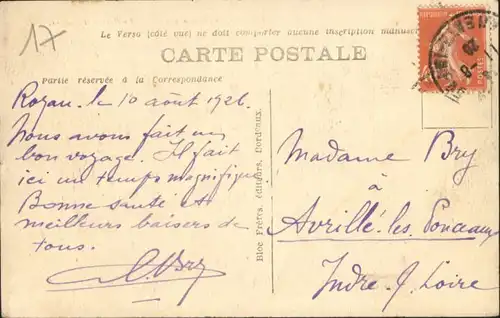 17
Le Verso (côté vue) ne doit comporter aucune inscription manuscr
CARTE POSTALE
Partie réservée à la Correspondance
Royan. le 10 août 1926.
Nous avons fait un
bon voyage. Il fait
ici un temps magnifique
Bonne santé et
meilleurs baisers de
tous.
Bry
Bloc Frères, éditeurs, Bordeaux.
Madame Bry
à
Avrillé-les-Ponceaux
Indre-&-Loire
POSTES